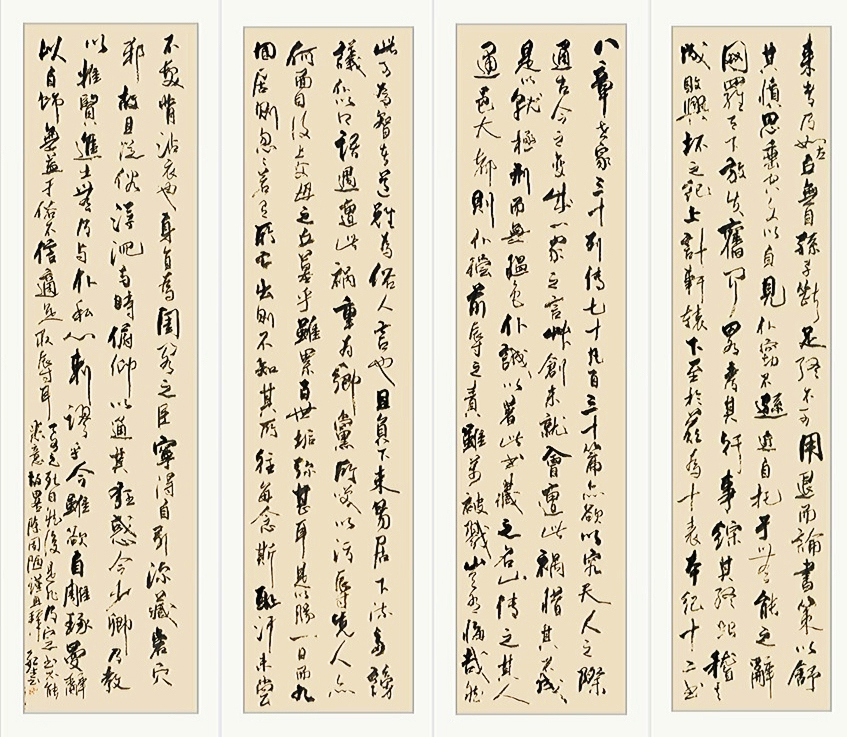 來者乃如左丘無目孫子斷足終不可用退而論書策以舒
其憤思垂空文以自見僕竊不遜近自托於無能之辭
網羅天下放失舊聞略考其行事綜其終始稽其
成敗興壞之紀上計軒轅下至於茲為十表本紀十二書
八章世家三十列傳七十凡百三十篇亦欲以究天人之際
通古今之變成一家之言草創未就會遭此禍惜其不成
是以就極刑而無慍色僕誠以著此書藏之名山傳之其人
通邑大都則僕償前辱之責雖萬被戮豈有悔哉然
此可為智者道難為俗人言也且負下未易居下流多謗
議僕以口語遇遭此禍重為鄉黨所笑以污辱先人亦
何面目復上父母之丘墓乎雖累百世垢彌甚耳是以腸一日而九
回居則忽忽若有所亡出則不知其所往每念斯恥汗未嘗
不發背沾衣也身直為閨閤之臣寧得自引深藏岩穴
邪故且從俗浮沉與時俯仰以通其狂惑今少卿乃教
以推賢進士無乃與僕私心剌謬乎今雖欲自雕琢曼辭
以自飾無益於俗不信適足取辱耳
要之死日然後是非乃定書不能
悉意故略陳固陋謹再拜